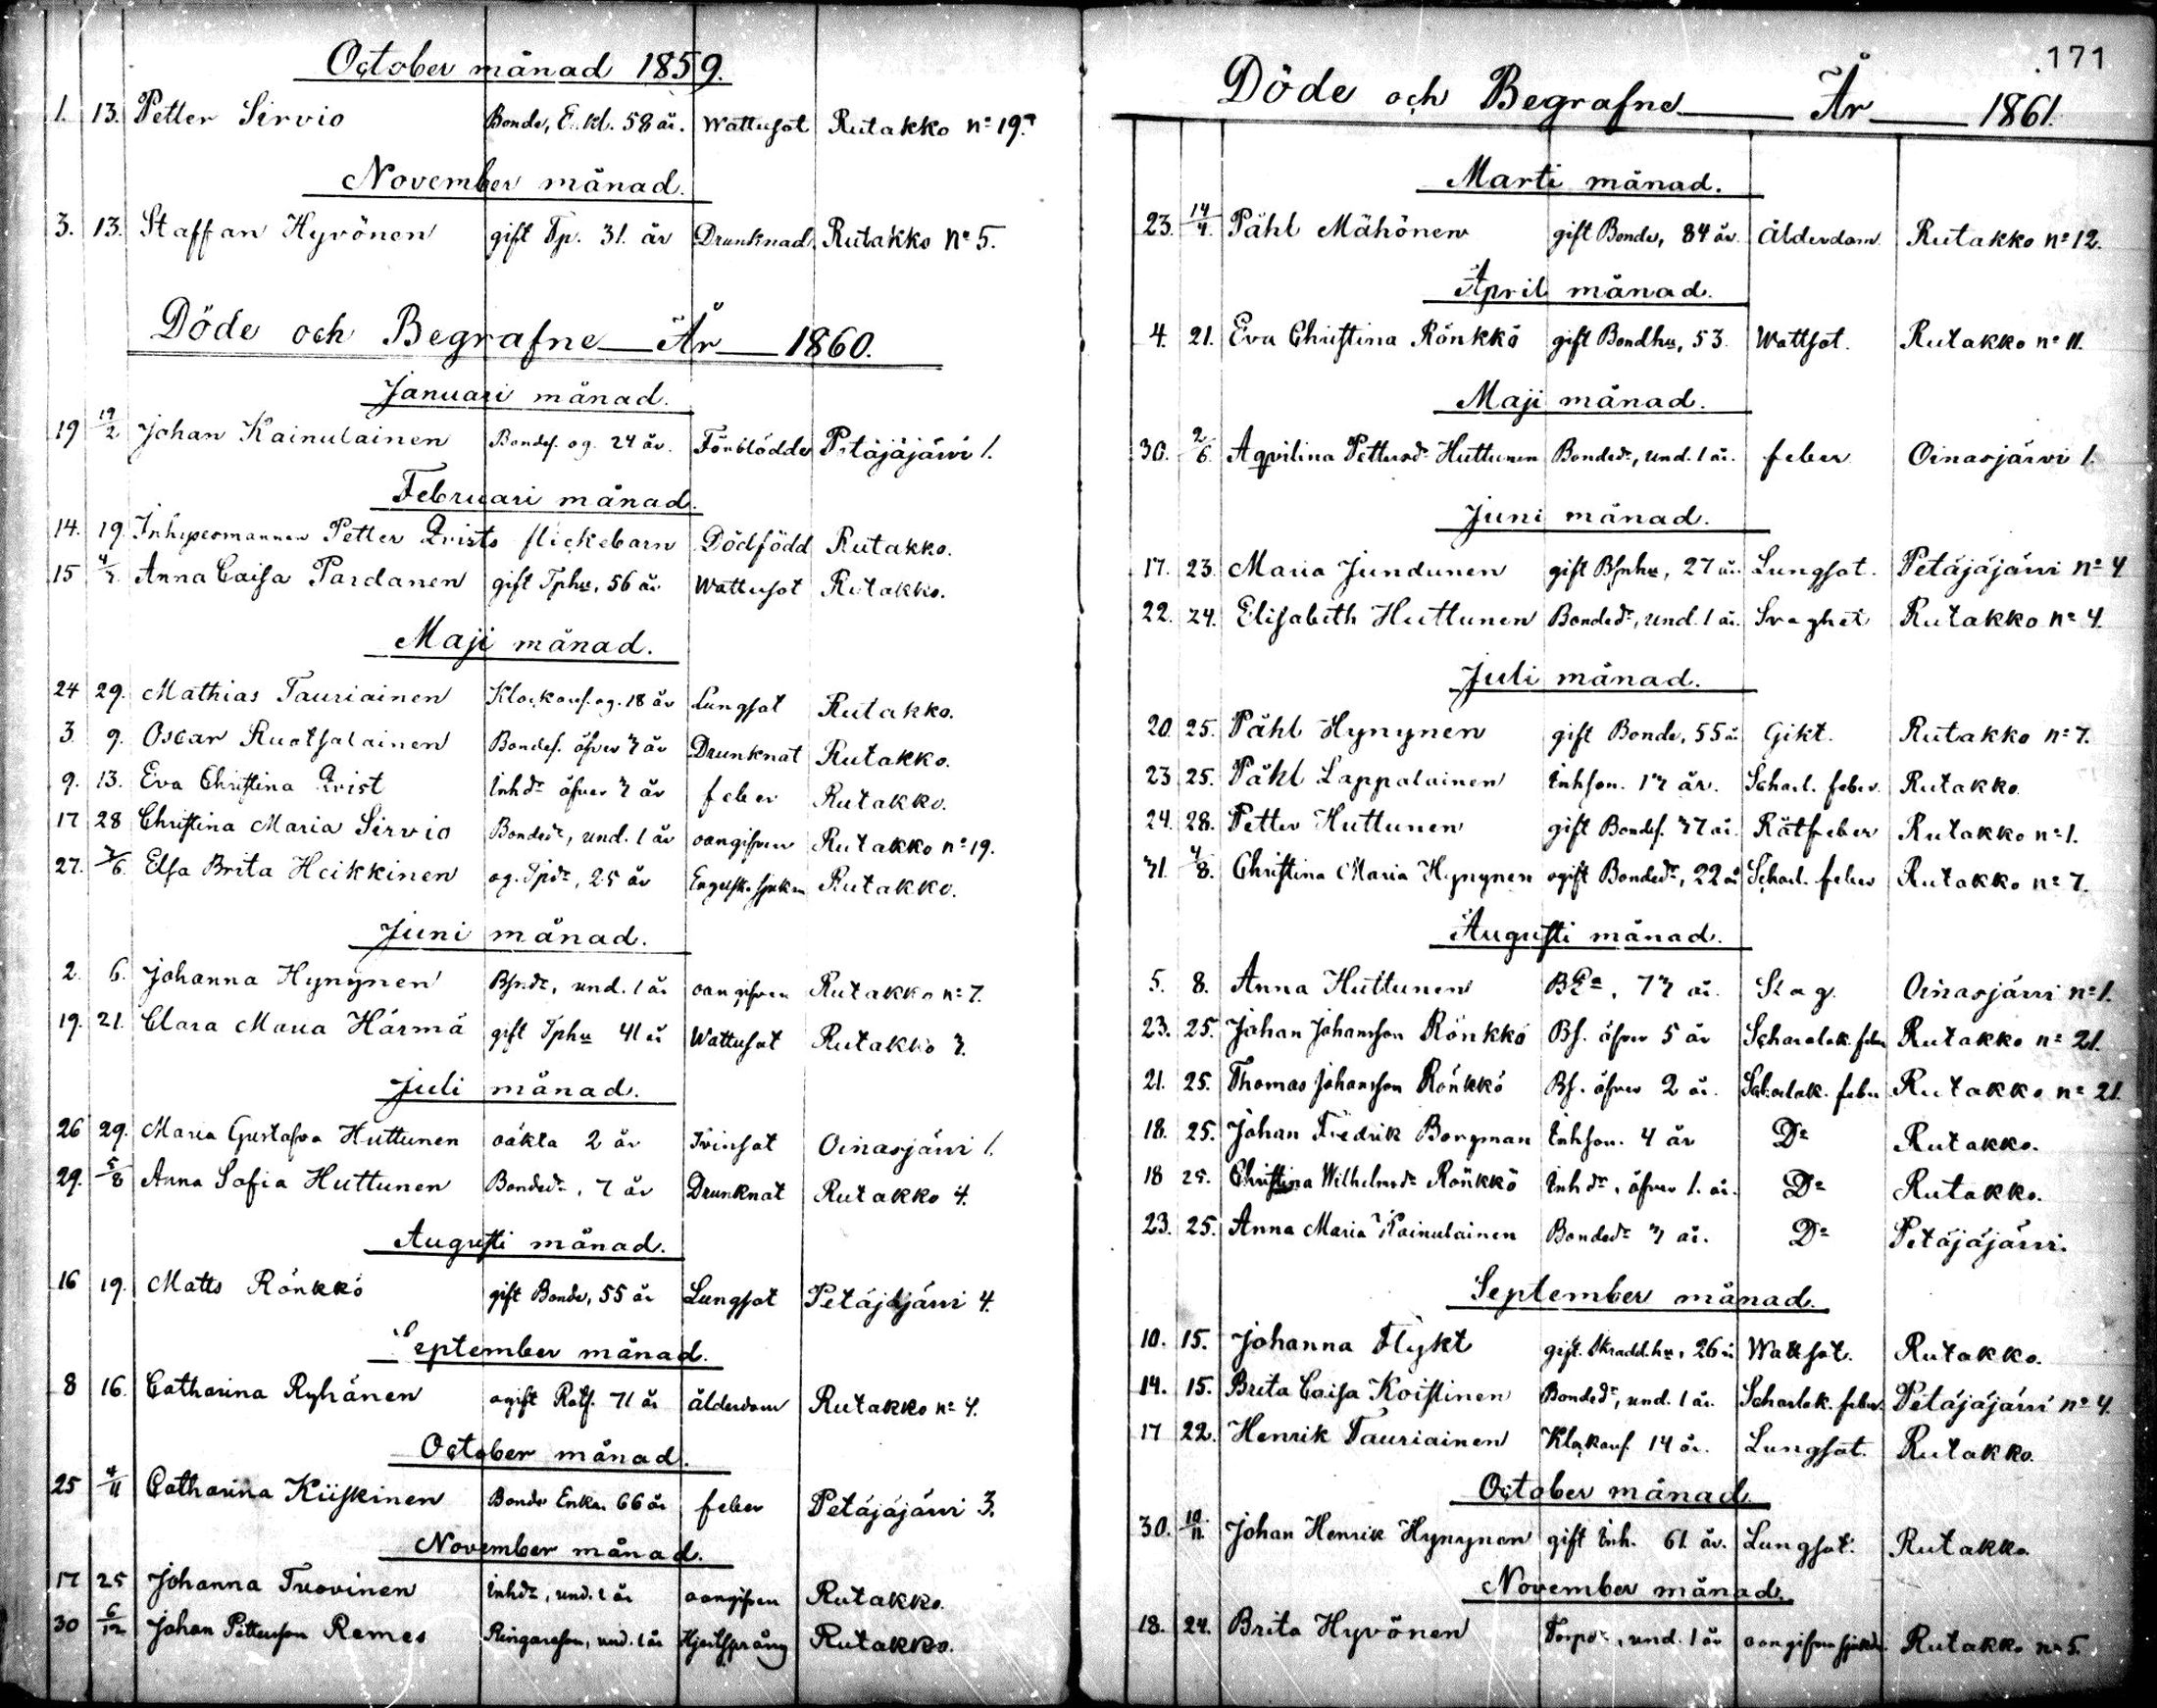 October månad 1859.
1. 13. Petter Sirvio Bonde, E.kl. 58 år. Wattusot Rutakko nº 19.
November månad.
3. 13. Staffan Hyvönen gift Tp. 31. år Drunknad Rutakko Nº 5.
Döde och Begrafne År 1860.
Januari månad.
19 19/2 Johan Kainulainen Bondes. og. 24 år. Förblödde Petäjäjärvi 1.
Februari månad.
14. 19. Petter Qvists flickebarn Dödfödd Rutakko.
15 4/3. Anna Caisa Pardanen gift Tphu, 56 år Wattusot Rutakko.
Maji månad.
24 29. Mathias Tauriainen og. 18 år Lungsot Rutakko.
3. 9. Oscar Ruotsalainen Bondes. öfver 3 år Drunknat Rutakko.
9. 13. Eva Christina Qvist Inhdr öfver 3 år feber Rutakko.
17 28 Christina Maria Sirvio Bondedr, und. 1 år oangifven Rutakko nº 19.
27. 3/6. Elsa Brita Heikkinen og. 25 år Engelsk. Rutakko.
Juni månad.
2. 6. Johanna Hynynen und. 1 år oangifven Rutakko nº 7.
19. 21. Clara Maria Härmä gift Tphu 41 år Wattusot Rutakko 3.
Juli månad.
26 29. Maria Gustafva Huttunen oäkta 2 år Tvinsot Oinasjärvi 1.
29. 5/8 Anna Sofia Huttunen Bondedr, 7 år Drunknat Rutakko 4.
Augusti månad.
16 19. Matts Rönkkö gift Bonde, 55 år Lungsot Petäjäjärvi 4.
September månad.
8 16. Catharina Ryhänen ogift 71 år ålderdom Rutakko nº 4.
October månad.
25 4/11 Catharina Kiiskinen Bonde Enka 66 år feber Petäjäjärvi 3.
November månad.
17 25 Johanna Tuovinen Inhdr, und. 1 år oangifven Rutakko.
30 6/12 Johan Pettersson Remes und. 1 år Hjertsprång Rutakko.
171
Döde och Begrafne År 1861.
Marti månad.
23. 14/4. Påhl Mähönen gift Bonde, 84 år. Ålderdom Rutakko nº 12.
April månad.
4. 21. Eva Christina Rönkkö gift Bondhu, 53. Wattsot. Rutakko nº 11.
Maji månad.
30. 2/6. Aqvilina Pettersdr Huttunen Bondedr, und. 1 år. feber Oinasjärvi 1.
Juni månad.
17. 23. Maria Jundunen gift Bsnhu, 27 år. Lungsot. Petäjäjärvi Nº 4
22. 24. Elisabeth Huttunen Bondedr, und. 1 år. Svaghet Rutakko nº 4.
Juli månad.
20. 25. Påhl Hynynen gift Bonde, 55 år Gikt. Rutakko nº 7.
23 25. Påhl Lappalainen Inhson. 13 år. Scharl. feber. Rutakko.
24. 28. Petter Huttunen gift Bondes. 37 år. Rötfeber Rutakko nº 1.
31. 4/8. Christina Maria Hynynen ogift Bondedr, 22 år Scharl. feber Rutakko nº 7.
Augusti månad.
5. 8. Anna Huttunen 73 år. Slag. Oinasjärvi nº 1.
23. 25. Johan Johansson Rönkkö Bs. öfver 5 år Scharlak. feber Rutakko nº 21.
21. 25. Thomas Johansson Rönkkö Bs. öfver 2 år. Scharlak. feber Rutakko nº 21.
18. 25. Johan Fredrik Borgman Inhson. 4 år Dº Rutakko.
18 25. Christina Wilhelmsdr Rönkkö Inhdr, öfver 1. år. Dº Rutakko.
23. 25. Anna Maria Kainulainen Bondedr 3 år. Dº Petäjäjärvi.
September månad.
10. 15. Johanna Flykt gift. Skradd.hu, 26 år Wattsot. Rutakko.
14. 15. Brita Caisa Koistinen Bondedr, und. 1 år. Scharlak. feber. Petäjäjärvi nº 4.
17 22. Henrik Tauriainen 14 år. Lungsot. Rutakko.
October månad.
30. 10/11. Johan Henrik Hynynen gift Inh. 61 år. Lungsot. Rutakko.
November månad.
18. 24. Brita Hyvönen Torpdr, und. 1 år oangifven sjukd. Rutakko nº 5.